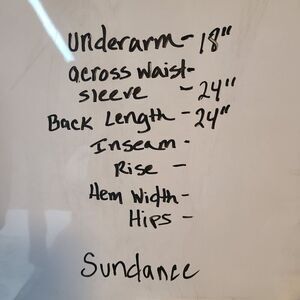 underarm - 18"
across waist -
sleeve - 24"
Back Length - 24"
Inseam -
Rise -
Hem Width -
Hips -
Sundance